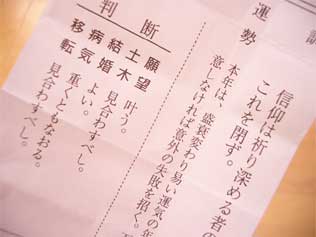 信仰は祈り深める者の
これを閉ず。
運勢
本年は、盛衰変わり易い運気の年
意しなければ意外の失敗を招く。
判断
願望 叶う。
土木 見合わすべし。
結婚 よい。
病気 重くともなおる。
移転 見合わすべし。